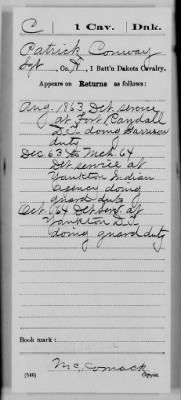 C | 1 Cav. | Dak.
Patrick Conway
Sgt., Co. A, 1 Batt'n Dakota Cavalry.
Appears on Returns as follows:
Aug. 1863 Det. service
at Fort Randall
D.T. doing Garrison
duty
Dec 63 to Mch 64
Det service at
Yankton Indian
Agency doing
guard duty
Oct. 64 Det serv. at
Yankton D.T.
doing guard duty
Book mark:
McComack
(546) Copyist.